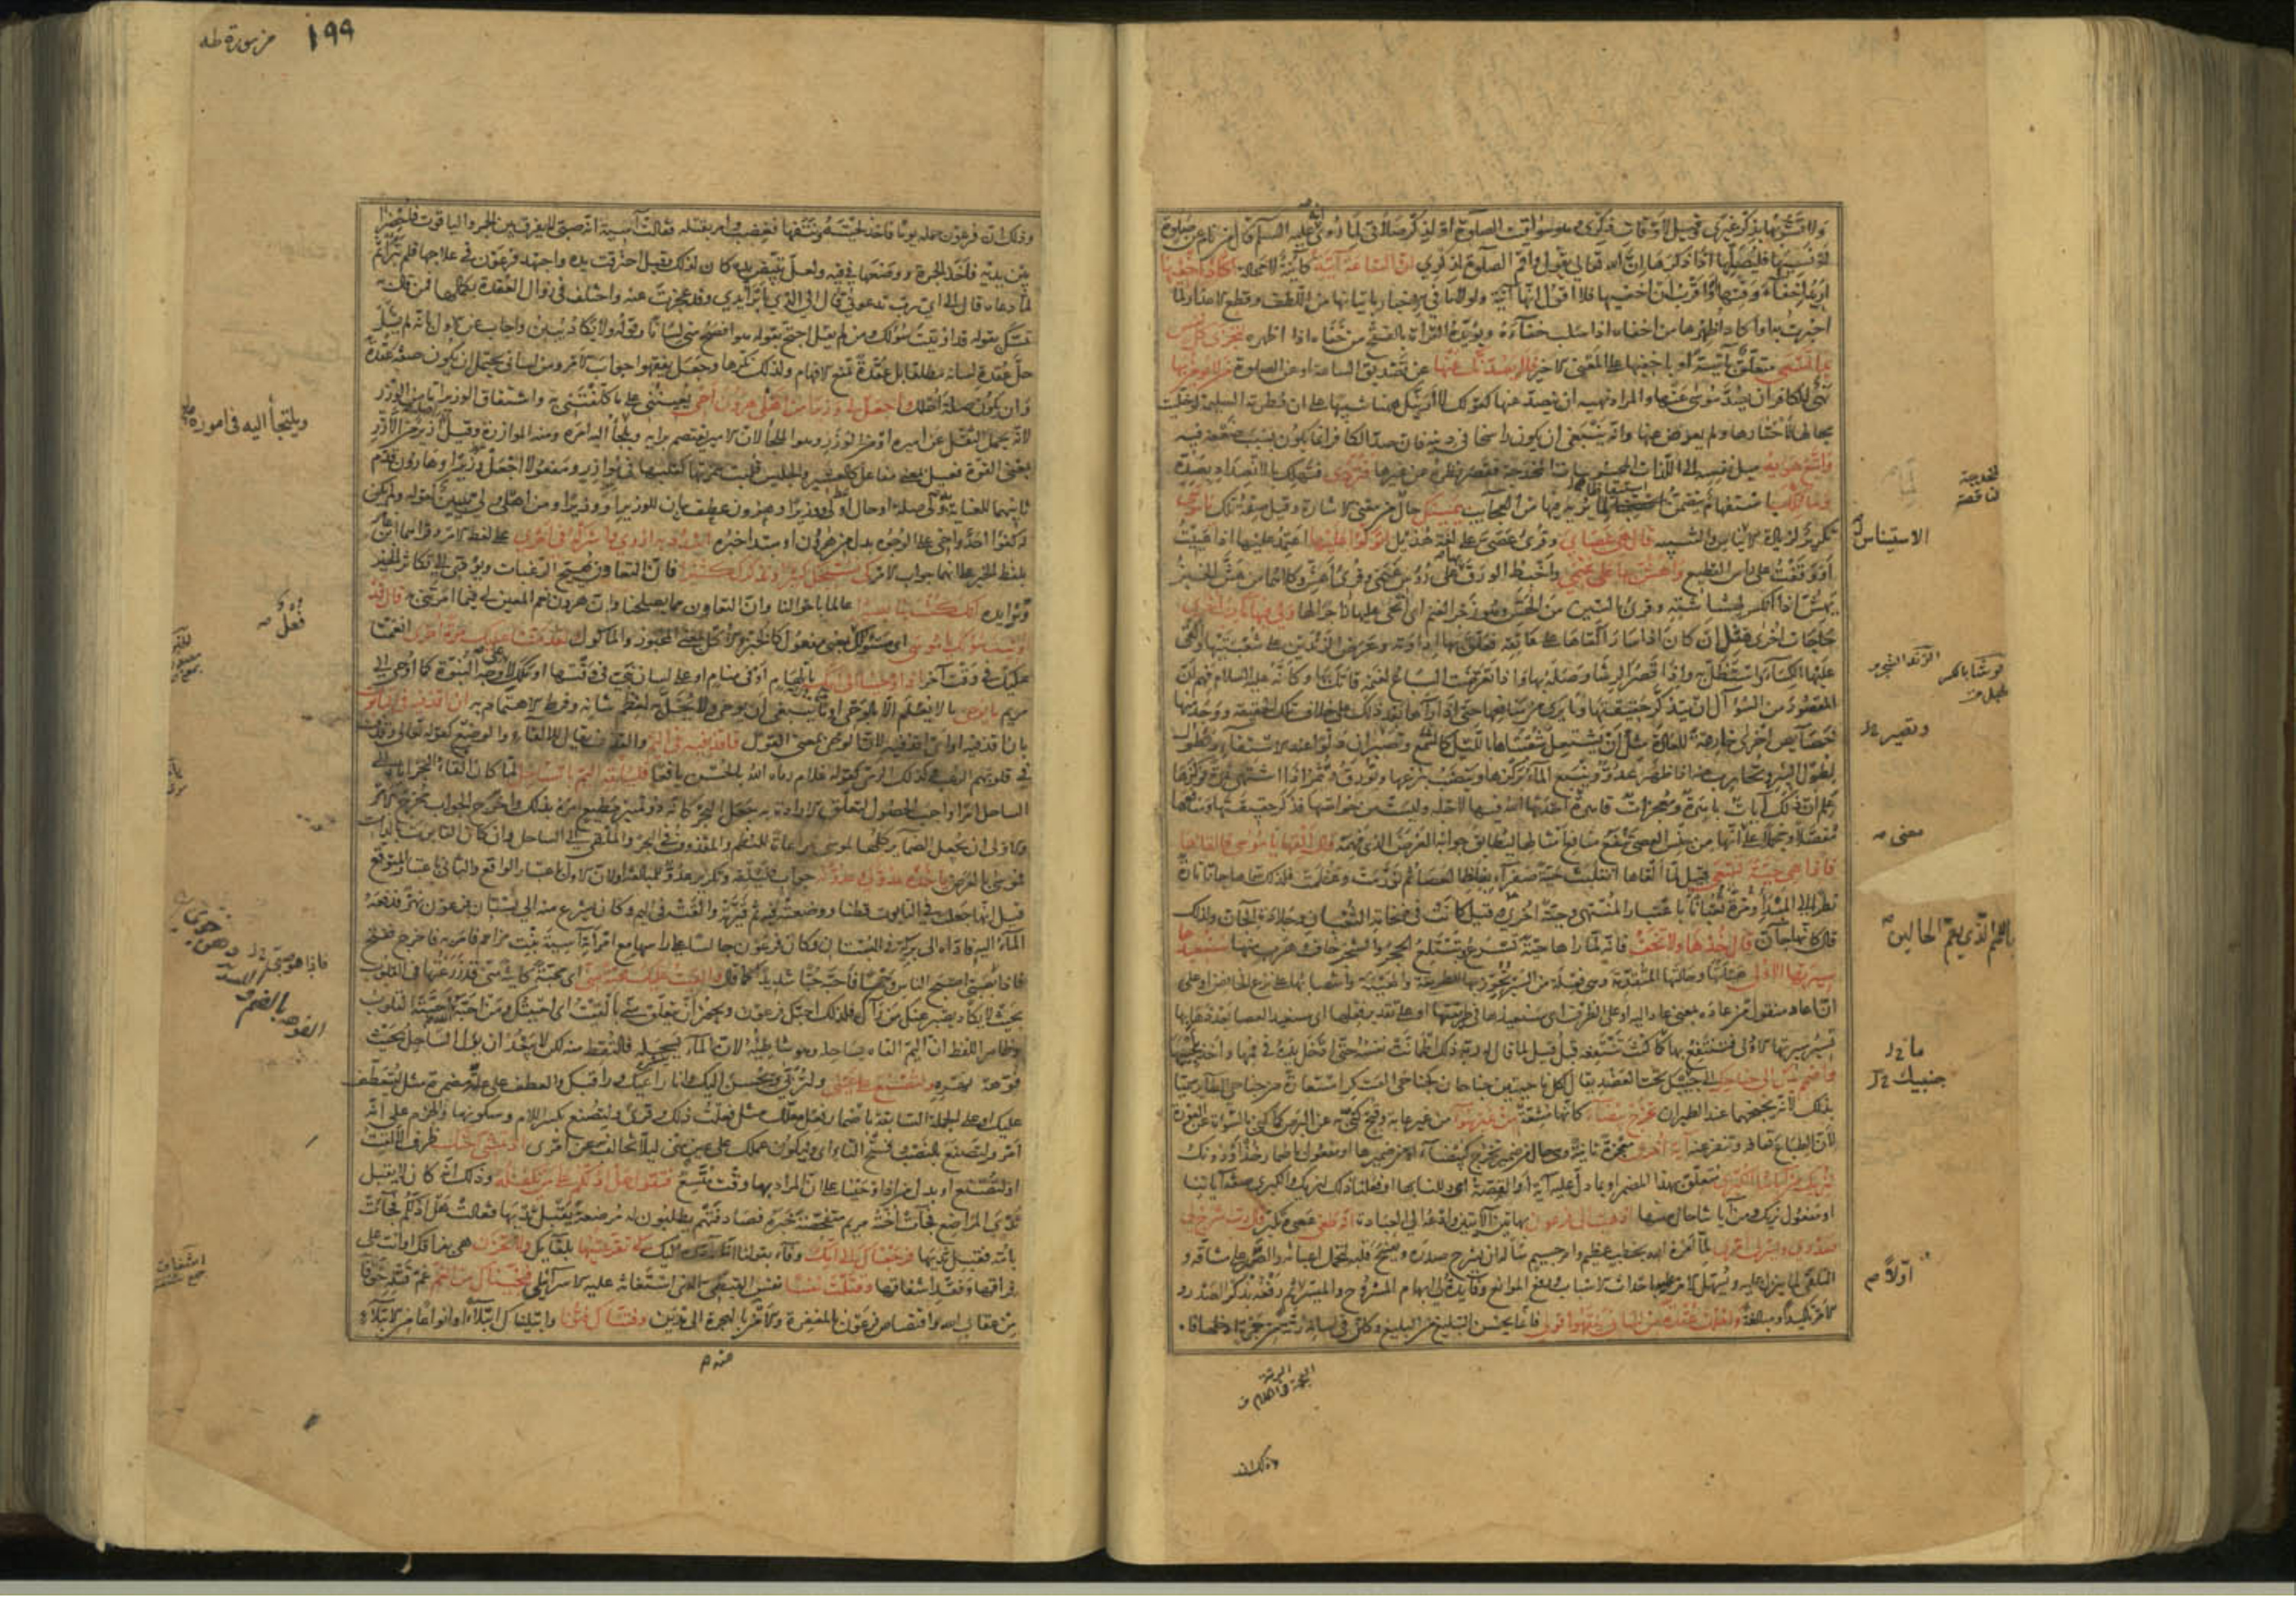 ولا تشوبها بذكر غيري وقيل لاوقات ذكري وهو مواقيت الصلوة او لذكر صلاتي لما روي انه عليه السلام قال من نام عن صلوة
او نسيها فليصلها اذا ذكرها ان الله تعالى يقول واقم الصلوة لذكري ان الساعة آتية كائنة لا محالة اكاد اخفيها
اريد اخفاء وقتها او اقرب ان اخفيها فلا اقول انها آتية ولولا ما في الاخبار باتيانها من اللطف وقطع الاعذار لما
اخبرت به او اكاد اظهرها من اخفاه اذا سلب خفاءه ويؤيده القراءة بالفتح من خفاه اذا اظهره لتجزى كل نفس
بما تسعى متعلق بآتية او باخفيها على المعنى الاخير فلا يصدنك عنها عن تصديق الساعة او عن الصلوة من لا يؤمن بها
نهي الكافر ان يصد موسى عنها والمراد نهيه ان ينصد عنها كقولك لا ارينك ههنا تنبيها على ان فطرته السليمة لو خليت
بحالها لاختارها ولم يعرض عنها وانه ينبغي ان يكون راسخا في دينه فان صد الكافر انما يكون بسبب ضعفه فيه
واتبع هواه ميل نفسه الى اللذات المحسوسة المخدجة فقصر نظره عن غيرها فتردى فتهلك بالانصداد بصده
وما تلك استفهام يتضمن استيقاظا لما يريه فيها من العجائب بيمينك حال من معنى الاشارة وقيل صلة تلك يا موسى
تكرير لزيادة الاستيناس والتنبيه قال هي عصاي وقرئ عصي على لغة هذيل اتوكؤا عليها اعتمد عليها اذا اعييت
او وقفت على رأس القطيع واهش بها على غنمي واخبط الورق بها على رؤس غنمي وقرئ اهش وكلاهما من هش الخبز
يهش اذا انكسر لهشاشته وقرئ بالسين من الهس وهو زجر الغنم اى انحي عليها زاجرا لها ولي فيها مآرب اخرى
حاجات اخرى مثل ان كان اذا سار القاها على عاتقه فعلق بها ادواته وعرض الزندين على شعبتيها والقى
عليها الكساء واستظل به واذا قصر الرشا وصله بها واذا تعرضت السباع لغنمه قاتل بها وكانه عليه السلام فهم ان
المقصود من السؤال ان يتذكر حقيقتها وما يرى من منافعها حتى اذا رآها بعد ذلك على خلاف تلك الحقيقة ووجد منها
خصائص اخرى خارقة للعادة مثل ان يشتعل شعبتاها بالليل كالشمع وتصيران دلوا عند الاستقاء وتطول
بطول البئر وتحارب عنه اذا ظهر عدو وينبع الماء بركزها وينضب بنزعها وتورق وتثمر اذا اشتهى ثمرة فركزها
علم ان ذلك آيات باهرة ومعجزات قاهرة احدثها الله فيها لاجله وليست من خواصها فذكر حقيقتها ومنافعها
مفصلا ومجملا على انها من جنس العصي تنفع منافع امثالها ليطابق جوابه الغرض الذي فهمه قال القها يا موسى فالقاها
فاذا هي حية تسعى قيل لما القاها انقلبت حية صفراء بغلظ العصا ثم تورمت وعظمت فلذلك سماها جانا تارة
نظرا الى المبدأ ومرة ثعبانا باعتبار المنتهى وحية اخرى وقيل كانت في ضخامة الثعبان وجلادة الجان ولذلك
قال كانها جان قال خذها ولا تخف فانه لما رآها حية تسرع وتبتلع الحجر والشجر خاف وهرب منها سنعيدها
سيرتها الاولى هيئتها وحالتها المتقدمة وهي فعلة من السير تجوز بها للطريقة والهيئة وانتصابها على نزع الخافض او على
ان اعاد منقول من عاده بمعنى عاد اليه او على الظرف اى سنعيدها في طريقتها او على تقدير فعلها اى سنعيد العصا بعد ذهابها
تسير سيرتها الاولى فتنتفع بها ما كنت تنتفعه قبل قيل لما قال له ربه ذلك اطمأنت نفسه حتى ادخل يده في فمها واخذ بلحييها
واضمم يدك الى جناحك الى جنبك تحت العضد يقال لكل ناحيتين جناحان كجناحي العسكر استعارة من جناحي الطائر سميا
بذلك لانه يجنحهما عند الطيران تخرج بيضاء كانها مشعة من غير سوء من غير عاهة وقبح كنى به عن البرص كما كنى بالسوأة عن العورة
لان الطباع تعافه وتنفر عنه آية اخرى معجزة ثانية وهي حال من ضمير تخرج كبيضاء او من ضميرها او مفعول باضمار خذ او دونك
لنريك من آياتنا الكبرى متعلق بهذا المضمر او بما دل عليه آية او القصة اى دللنا بها او فعلنا ذلك لنريك والكبرى صفة آياتنا
او مفعول نريك ومن آياتنا حال منها اذهب الى فرعون بهاتين الآيتين وادعه الى العبادة انه طغى عصى وتكبر قال رب اشرح لي
صدري ويسر لي امري لما امره الله بخطب عظيم وامر جسيم سأله ان يشرح صدره ويفسح قلبه لتحمل اعبائه والصبر على مشاقه و
التلقي لما ينزل عليه ويسهل الامر عليه باحداث الاسباب ورفع الموانع وفائدة لي ابهام المشروح والميسر اولا ثم رفعه بذكر الصدر و
الامر تاكيدا ومبالغة واحلل عقدة من لساني يفقهوا قولي فانما يحسن التبليغ من البليغ وكان في لسانه رتة من جمرة ادخلها فاه
المخدجة
الناقصة
الاستيناس
وتقصير
معنى
باسم الذي يعم الحالين
جنبيك
اولا
وذلك ان
١٩٩
من سورة طه
وذلك ان فرعون حمله يوما فاخذ لحيته ونتفها فغضب وامر بقتله فقالت آسية انه صبي لا يفرق بين الجمر والياقوت فاحضرا
بين يديه فاخذ الجمرة ووضعها في فيه ولعل تبييض يده كان لذلك وقيل احترقت يده واجتهد فرعون في علاجها فلم تبرأ ثم
لما دعاه قال الى اي رب تدعوني قال الى الذي ابرأ يدي وقد عجزت عنه واختلف في زوال العقدة بكمالها فمن قال به
تمسك بقوله قد اوتيت سؤلك ومن لم يقل احتج بقوله هو افصح مني لسانا وقوله ولا يكاد يبين واجاب عن الاول بانه لم يسأل
حل عقدة لسانه مطلقا بل عقدة تمنع الافهام ولذلك نكرها وجعل يفقهوا جواب الامر ومن لساني يحتمل ان يكون صفة عقدة
وان يكون صلة احلل واجعل لي وزيرا من اهلي هرون اخي يعينني على ما كلفتني به واشتقاق الوزير اما من الوزر
لانه يحمل الثقل عن اميره او من الوزر وهو الملجأ لان الامير يعتصم برأيه ويلتجأ اليه في امره ومنه الموازرة وقيل اصله ازير من الازر
بمعنى القوة فعيل بمعنى مفاعل كالعشير والجليس قلبت همزته كقلبها في موازر ومفعولا اجعل وزيرا وهارون قدم
ثانيهما للعناية به ولي صلة او حال او لي وزيرا وهرون عطف بيان للوزير او وزيرا ومن اهلي ولي تبيين كقوله ولم يكن
له كفوا احد واخي على الوجوه بدل من هرون او مبتدأ خبره اشدد به ازري واشركه في امري على لفظ الامر وقرأهما ابن عامر
بلفظ الخبر على انهما جواب الامر كي نسبحك كثيرا ونذكرك كثيرا فان التعاون يهيج الرغبات ويؤدي الى تكاثر الخير
وتزايده انك كنت بنا بصيرا عالما باحوالنا وان التعاون مما يصلحنا وان هرون نعم المعين لي فيما امرتني به قال قد
اوتيت سؤلك يا موسى اى مسؤلك فعل بمعنى مفعول كالخبز والاكل بمعنى المخبوز والماكول ولقد مننا عليك مرة اخرى انعمنا
عليك في وقت آخر اذ اوحينا الى امك بالهام او في منام او على لسان نبي في وقتها او ملك لا على وجه النبوة كما اوحي الى
مريم ما يوحى ما لا يعلم الا بالوحي او مما ينبغي ان يوحى ولا يخل به لعظم شانه وفرط الاهتمام به ان اقذفيه في التابوت
بان اقذفيه او اى اقذفيه لان الوحي بمعنى القول فاقذفيه في اليم والقذف يقال للالقاء وللوضع كقوله تعالى وقذف
في قلوبهم الرعب وكذلك الرمي كقوله غلام رماه الله بالحسن يافعا فليلقه اليم بالساحل لما كان القاء البحر اياه الى
الساحل امرا واجب الحصول لتعلق الارادة به جعل البحر كانه ذو تمييز مطيع امره بذلك واخرج الجواب مخرج الامر
والاولى ان يجعل الضمائر كلها لموسى مراعاة للنظم والمقذوف في البحر والملقى الى الساحل وان كان التابوت بالذات
فموسى بالعرض ياخذه عدو لي وعدو له جواب فليلقه وتكرير عدو للمبالغة او لان الاول باعتبار الواقع والثاني باعتبار المتوقع
قيل انها جعلت في التابوت قطنا ووضعته فيه ثم قيرته والقته في اليم وكان يشرع منه الى بستان فرعون نهر فدفعه
الماء اليه فاداه الى بركة في البستان وكان فرعون جالسا على راسها مع امرأته آسية بنت مزاحم فامر به فاخرج ففتح
فاذا هو صبي اصبح الناس وجها فاحبه حبا شديدا كما قال والقيت عليك محبة مني اى محبة كائنة مني قد زرعتها في القلوب
بحيث لا يكاد يصبر عنك من رآك فلذلك احبك فرعون ويجوز ان يتعلق مني بالقيت اى احببتك ومن احبه الله احبته القلوب
وظاهر اللفظ ان اليم القاه بساحله وهو شاطئه لان الماء يسحله فالتقط منه لكن لا يبعد ان يؤول الساحل بجنب
فوهة نهره ولتصنع على عيني ولتربى ويحسن اليك وانا راعيك وراقبك والعطف على علة مضمرة مثل ليتعطف
عليك او على الجملة السابقة باضمار فعل معلل مثل فعلت ذلك وقرئ ولتصنع بكسر اللام وسكونها والجزم على انه
امر ولتصنع بالنصب وفتح التاء اى وليكون عملك على عين مني لئلا تخالف به عن امري اذ تمشي اختك ظرف لالقيت
او لتصنع او بدل من اذ اوحينا على ان المراد بها وقت متسع فتقول هل ادلكم على من يكفله وذلك انه كان لا يقبل
ثدي المراضع فجاءت اخته مريم متفحصة خبره فصادفتهم يطلبون له مرضعة يقبل ثديها فقالت هل ادلكم فجاءت
بامه فقبل ثديها فرجعناك الى امك وفاء بقولنا انا رادوه اليك كي تقر عينها بلقائك ولا تحزن هي بفراقك او انت على
فراقها وفقد اشفاقها وقتلت نفسا نفس القبطي الذي استغاثه عليه الاسرائيلي فنجيناك من الغم غم قتله خوفا
من عقاب الله واقتصاص فرعون بالمغفرة والامر بالهجرة الى مدين وفتناك فتونا وابتليناك ابتلاء او انواعا من الابتلاء
ويلتجأ اليه في اموره
فعل
فاذا هو صبي
الفوهة بالضم
اشفاق